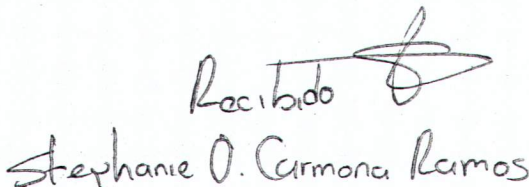 Recibido
Stephanie O. Carmona Ramos